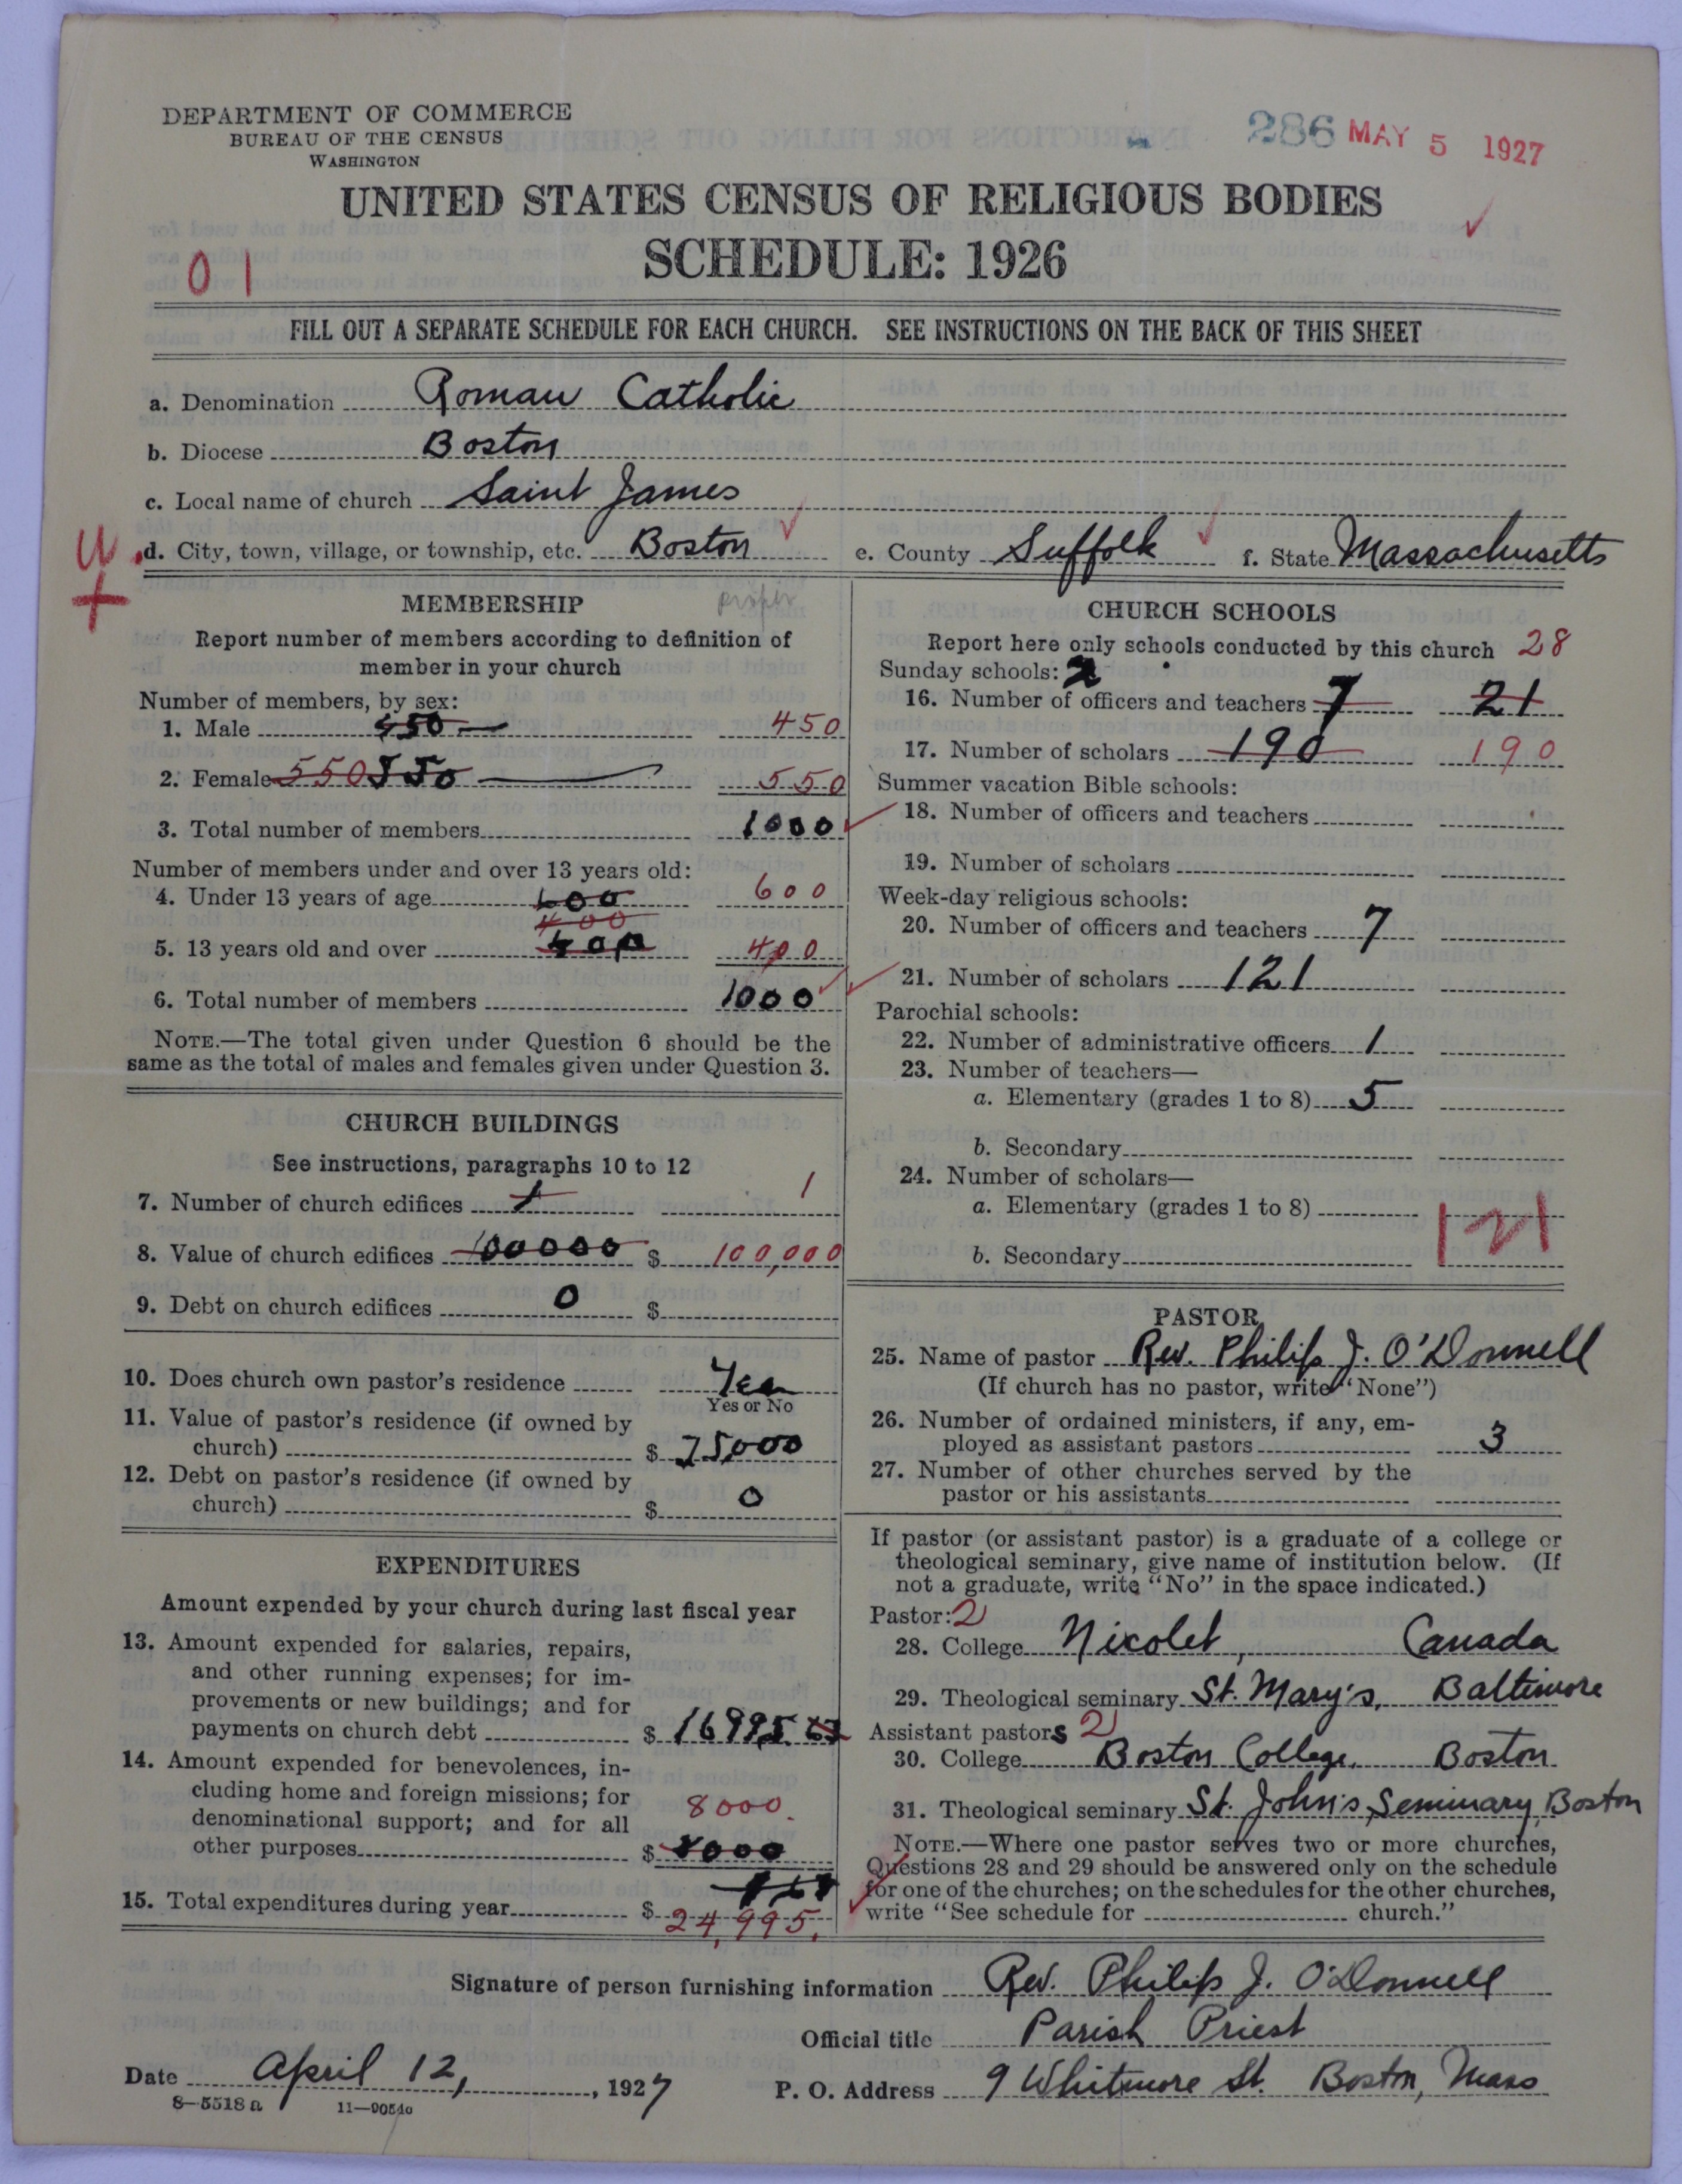 DEPARTMENT OF COMMERCE
BUREAU OF THE CENSUS
WASHINGTON
286 MAY 5 1927
UNITED STATES CENSUS OF RELIGIOUS BODIES
SCHEDULE: 1926
01
FILL OUT A SEPARATE SCHEDULE FOR EACH CHURCH. SEE INSTRUCTIONS ON THE BACK OF THIS SHEET
a. Denomination Roman Catholic
b. Diocese Boston
c. Local name of church Saint James
d. City, town, village, or township, etc. Boston e. County Suffolk f. State Massachusetts
MEMBERSHIP
Report number of members according to definition of
member in your church
Number of members, by sex:
1. Male 450 450
2. Female 550 550 550
3. Total number of members 1000
Number of members under and over 13 years old:
4. Under 13 years of age 600 600
400
5. 13 years old and over 400 400
6. Total number of members 1000
NOTE.—The total given under Question 6 should be the
same as the total of males and females given under Question 3.
CHURCH BUILDINGS
See instructions, paragraphs 10 to 12
7. Number of church edifices 1 1
8. Value of church edifices 100000 $ 100,000
9. Debt on church edifices 0 $
10. Does church own pastor's residence Yes
Yes or No
11. Value of pastor's residence (if owned by
church) $ 75,000
12. Debt on pastor's residence (if owned by
church) $ 0
EXPENDITURES
Amount expended by your church during last fiscal year
13. Amount expended for salaries, repairs,
and other running expenses; for im-
provements or new buildings; and for
payments on church debt $ 16995.
14. Amount expended for benevolences, in-
cluding home and foreign missions; for
denominational support; and for all 8000.
other purposes $ 8000
15. Total expenditures during year $ 24,995.
CHURCH SCHOOLS
Report here only schools conducted by this church 28
Sunday schools: 2
16. Number of officers and teachers 7 21
17. Number of scholars 190 190
Summer vacation Bible schools:
18. Number of officers and teachers
19. Number of scholars
Week-day religious schools:
20. Number of officers and teachers 7
21. Number of scholars 121
Parochial schools:
22. Number of administrative officers 1
23. Number of teachers—
a. Elementary (grades 1 to 8) 5
b. Secondary
24. Number of scholars—
a. Elementary (grades 1 to 8) 121
b. Secondary
PASTOR
25. Name of pastor Rev. Philip J. O'Donnell
(If church has no pastor, write "None")
26. Number of ordained ministers, if any, em-
ployed as assistant pastors 3
27. Number of other churches served by the
pastor or his assistants
If pastor (or assistant pastor) is a graduate of a college or
theological seminary, give name of institution below. (If
not a graduate, write "No" in the space indicated.)
Pastor: 2
28. College Nicolet, Canada
29. Theological seminary St. Mary's, Baltimore
Assistant pastors 2
30. College Boston College, Boston
31. Theological seminary St. John's Seminary, Boston
NOTE.—Where one pastor serves two or more churches,
Questions 28 and 29 should be answered only on the schedule
for one of the churches; on the schedules for the other churches,
write "See schedule for church."
Signature of person furnishing information Rev. Philip J. O'Donnell
Official title Parish Priest
Date April 12, 1927 P. O. Address 9 Whitmore St. Boston, Mass
8—5518 a 11—9054a